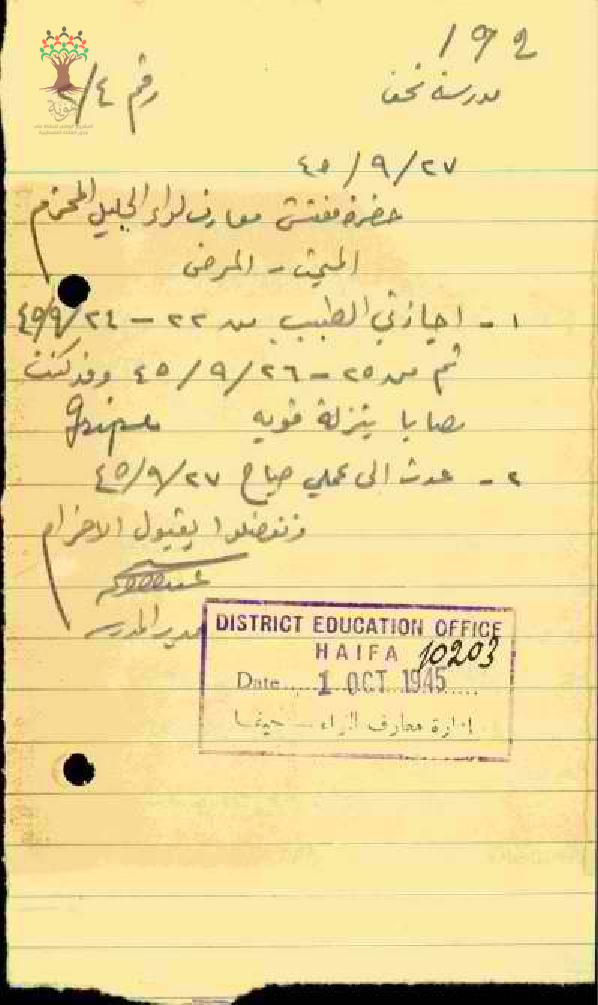 192
مدرسة نحف
رقم ٤/
٤٥/٩/٢٧
حضرة مفتش معارف لواء الجليل المحترم
المبحث - المرض
١- اجازني الطبيب من ٢٢ - ٤٥/٩/٢٤
ثم من ٢٥ - ٤٥/٩/٢٦ وقد كنت
مصابا بنزلة قويه
٢- عدت الى عملي صباح ٤٥/٩/٢٧
وتفضلوا بقبول الاحترام
مدير المدرسة
DISTRICT EDUCATION OFFICE
HAIFA 10203
Date..... 1 OCT 1945.....
ادارة معارف اللواء - حيفا